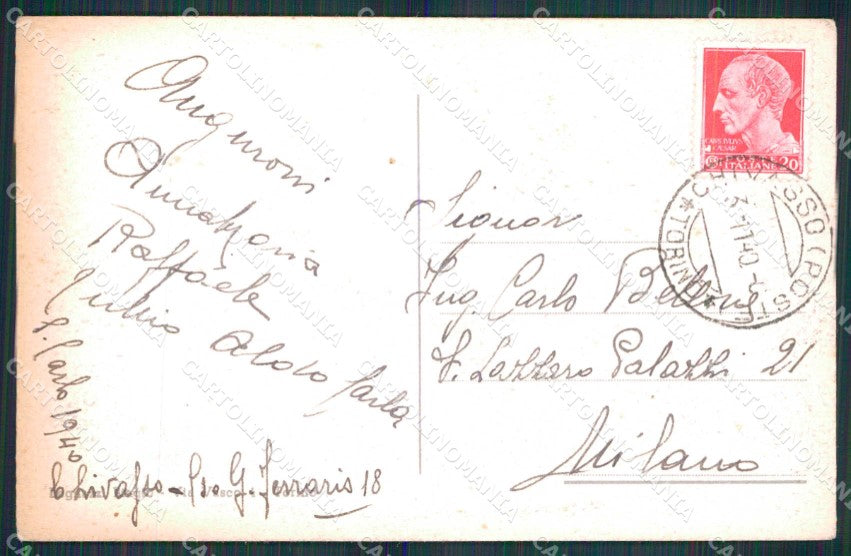 Auguroni
Annamaria
Raffaele
Aldo Carla
S. Carlo 1940
Chivasso - G. Ferraris 18
CAIVS IVLIVS
CAESAR
20
ITALIANE
CHIVASSO (POSTE
11 40
* TORINO *
Signor
Ing. Carlo
Lazzaro Palazzi 21
Milano
CARTOLINOMANIA